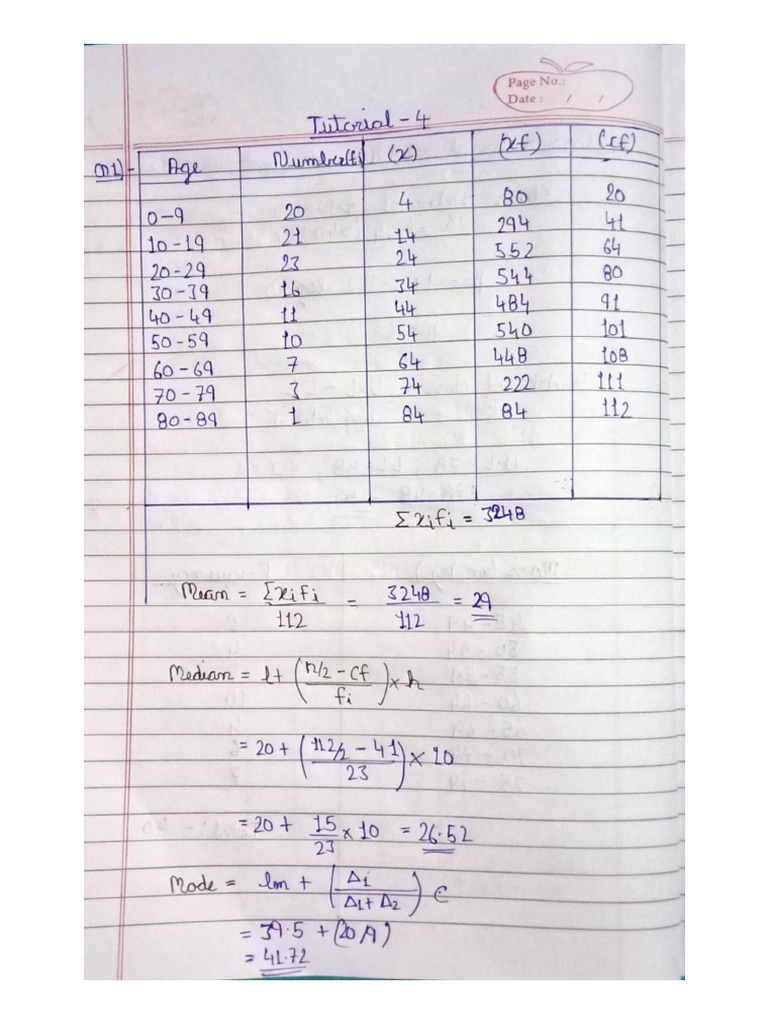 Page No.:
Date : / /
Tutorial - 4
Q1)- Age Number(fi) (x) (xf) (cf)
0-9 20 4 80 20
10-19 21 14 294 41
20-29 23 24 552 64
30-39 16 34 544 80
40-49 11 44 484 91
50-59 10 54 540 101
60-69 7 64 448 108
70-79 3 74 222 111
80-89 1 84 84 112
Σxifi = 3248
Mean = Σxifi/112 = 3248/112 = 29
Median = l+ (n/2 - cf / fi) × h
= 20 + (112/2 - 41 / 23) × 10
= 20 + 15/23 × 10 = 26.52
Mode = lm + (Δ1 / Δ1+Δ2) c
= 39.5 + (20/9)
= 41.72